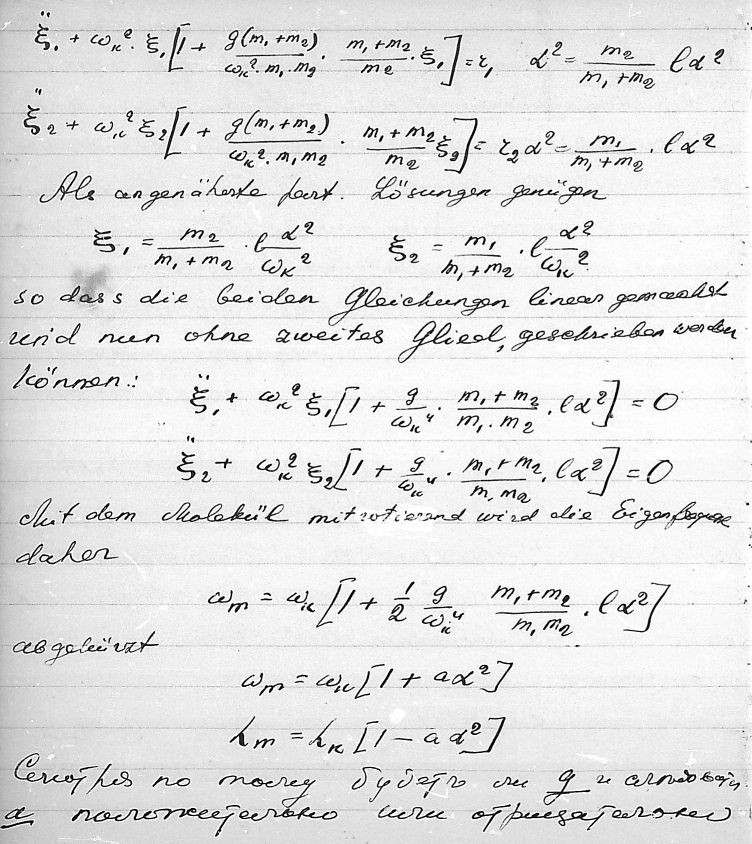 ξ̈₁ + ω_k² · ξ₁ [1 + g(m₁+m₂)/(ω_k² · m₁ · m₂) · (m₁+m₂)/m₂ · ξ₁] = r₁ α² = m₂/(m₁+m₂) lα²
ξ̈₂ + ω_k² ξ₂ [1 + g(m₁+m₂)/(ω_k² · m₁ m₂) · (m₁+m₂)/m₂ ξ₂] = r₂ α² = m₁/(m₁+m₂) · lα²
Als angenäherte part. Lösungen genügen
ξ₁ = m₂/(m₁+m₂) · l α²/ω_k² ξ₂ = m₁/(m₁+m₂) · l α²/ω_k²
so dass die beiden Gleichungen linear gemacht
und nun ohne zweites Glied, geschrieben werden
können.:
ξ̈₁ + ω_k² ξ₁ [1 + g/ω_k⁴ · (m₁+m₂)/(m₁ · m₂) · lα²] = 0
ξ̈₂ + ω_k² ξ₂ [1 + g/ω_k⁴ · (m₁+m₂)/(m₁ m₂) · lα²] = 0
Mit dem Molekül mitrotierend wird die
daher
ω_m = ω_k [1 + 1/2 g/ω_k⁴ (m₁+m₂)/(m₁ m₂) · lα²]
abgekürzt
ω_m = ω_k [1 + aα²]
λ_m = λ_k [1 − aα²]
Смотря по тому будетъ ли g и
a положительно или отрицательно